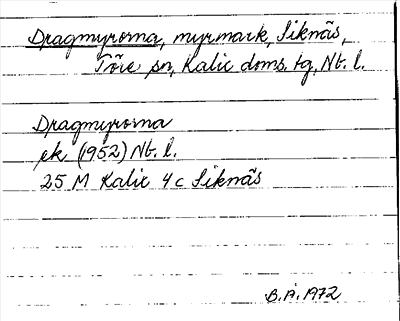 Dragmyrorna, myrmark, Siknäs,
Töre sn, Kalix doms. tg, Nb. l.
Dragmyrorna
ek (1952) Nb. l.
25 M Kalix 4c Siknäs
B.Å. 1972